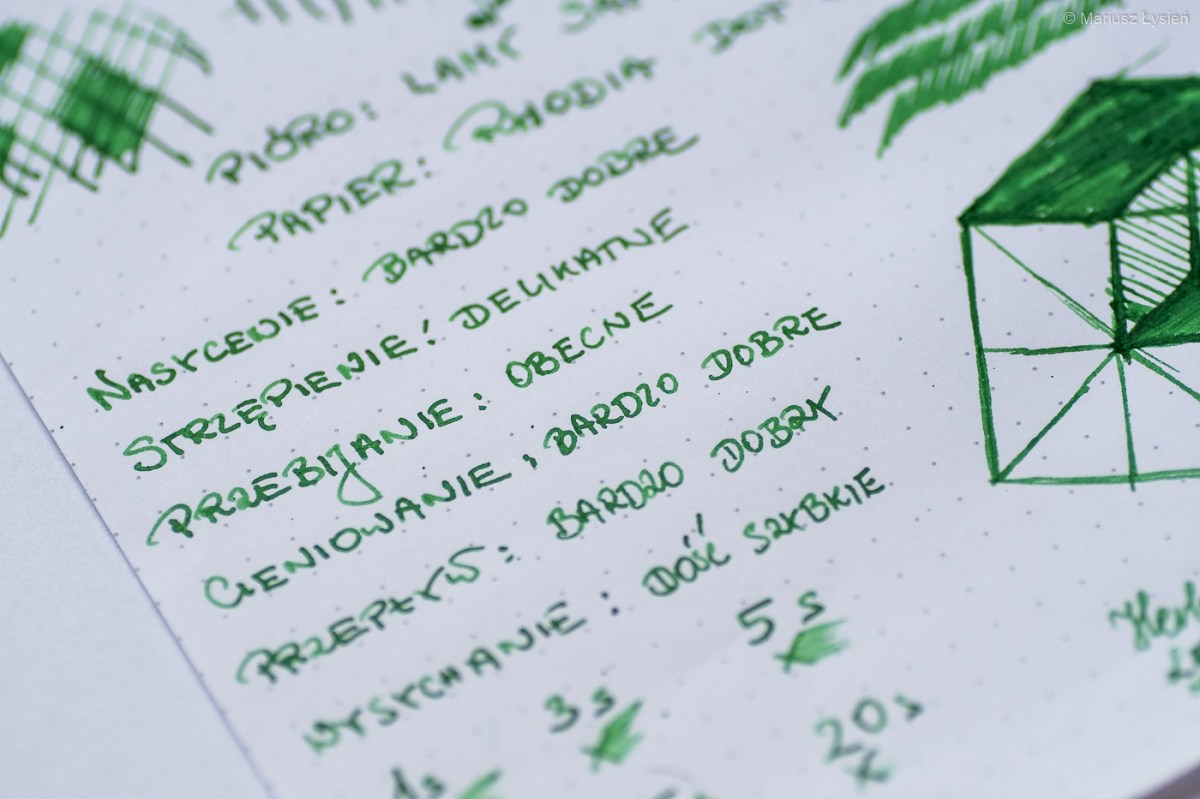 © Mariusz Łysień
PIÓRO: LAMY
PAPIER: RHODIA DOT
NASYCENIE: BARDZO DOBRE
STRZĘPIENIE: DELIKATNE
PRZEBIJANIE: OBECNE
CIENIOWANIE: BARDZO DOBRE
PRZEPŁYW: BARDZO DOBRY
WYSYCHANIE: DOŚĆ SZYBKIE
1s 3s 5s
20s